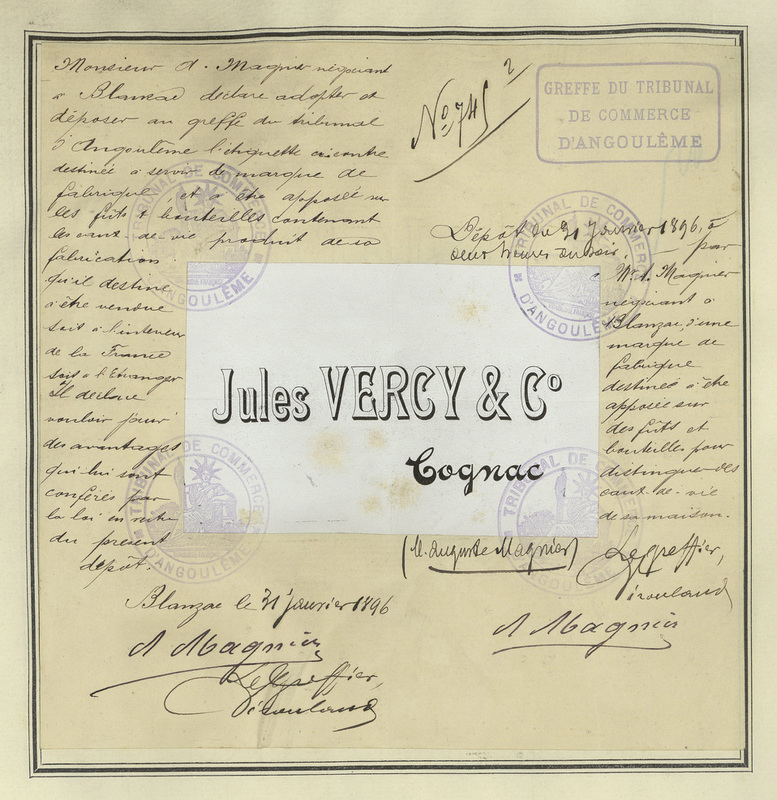 Monsieur A. Magnier négociant
à Blanzac déclare adopter et
déposer au greffe du tribunal
d'Angoulême l'étiquette ci-contre
destinée à servir de marque de
fabrique et à être apposée sur
les fûts & bouteilles contenant
les eaux-de-vie produit de sa
fabrication
qu'il destine
à être vendue
soit à l'intérieur
de la France
soit à l'Etranger
Il déclare
vouloir jouir
des avantages
qui lui sont
conférés par
la loi en vertu
du présent
dépôt.
Blanzac le 31 Janvier 1896
A Magnier
Le Greffier,
No 745
2
GREFFE DU TRIBUNAL
DE COMMERCE
D'ANGOULÊME
Dépôt du 31 Janvier 1896, à
deux heures du soir, par
Mr A. Magnier
négociant à
Blanzac, d'une
marque de
fabrique
destinée à être
apposée sur
des fûts et
bouteilles pour
distinguer des
eaux-de-vie
de sa maison.
Le Greffier,
A Magnier
Jules VERCY & Co
Cognac
(M. Auguste Magnier)
TRIBUNAL DE COMMERCE
D'ANGOULÊME
TRIBUNAL DE COMMERCE
D'ANGOULÊME
TRIBUNAL DE COMMERCE
D'ANGOULÊME
TRIBUNAL DE COMMERCE
D'ANGOULÊME